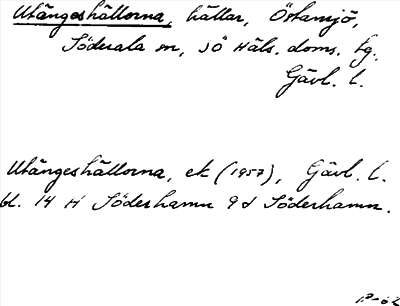 Utängeshällorna, hällar, Östansjö,
Söderala sn, SÖ Häls. doms. tg.,
Gävl. l.
Utängeshällorna, ek (1957), Gävl. l.
bl. 14 H Söderhamn 9 d Söderhamn.